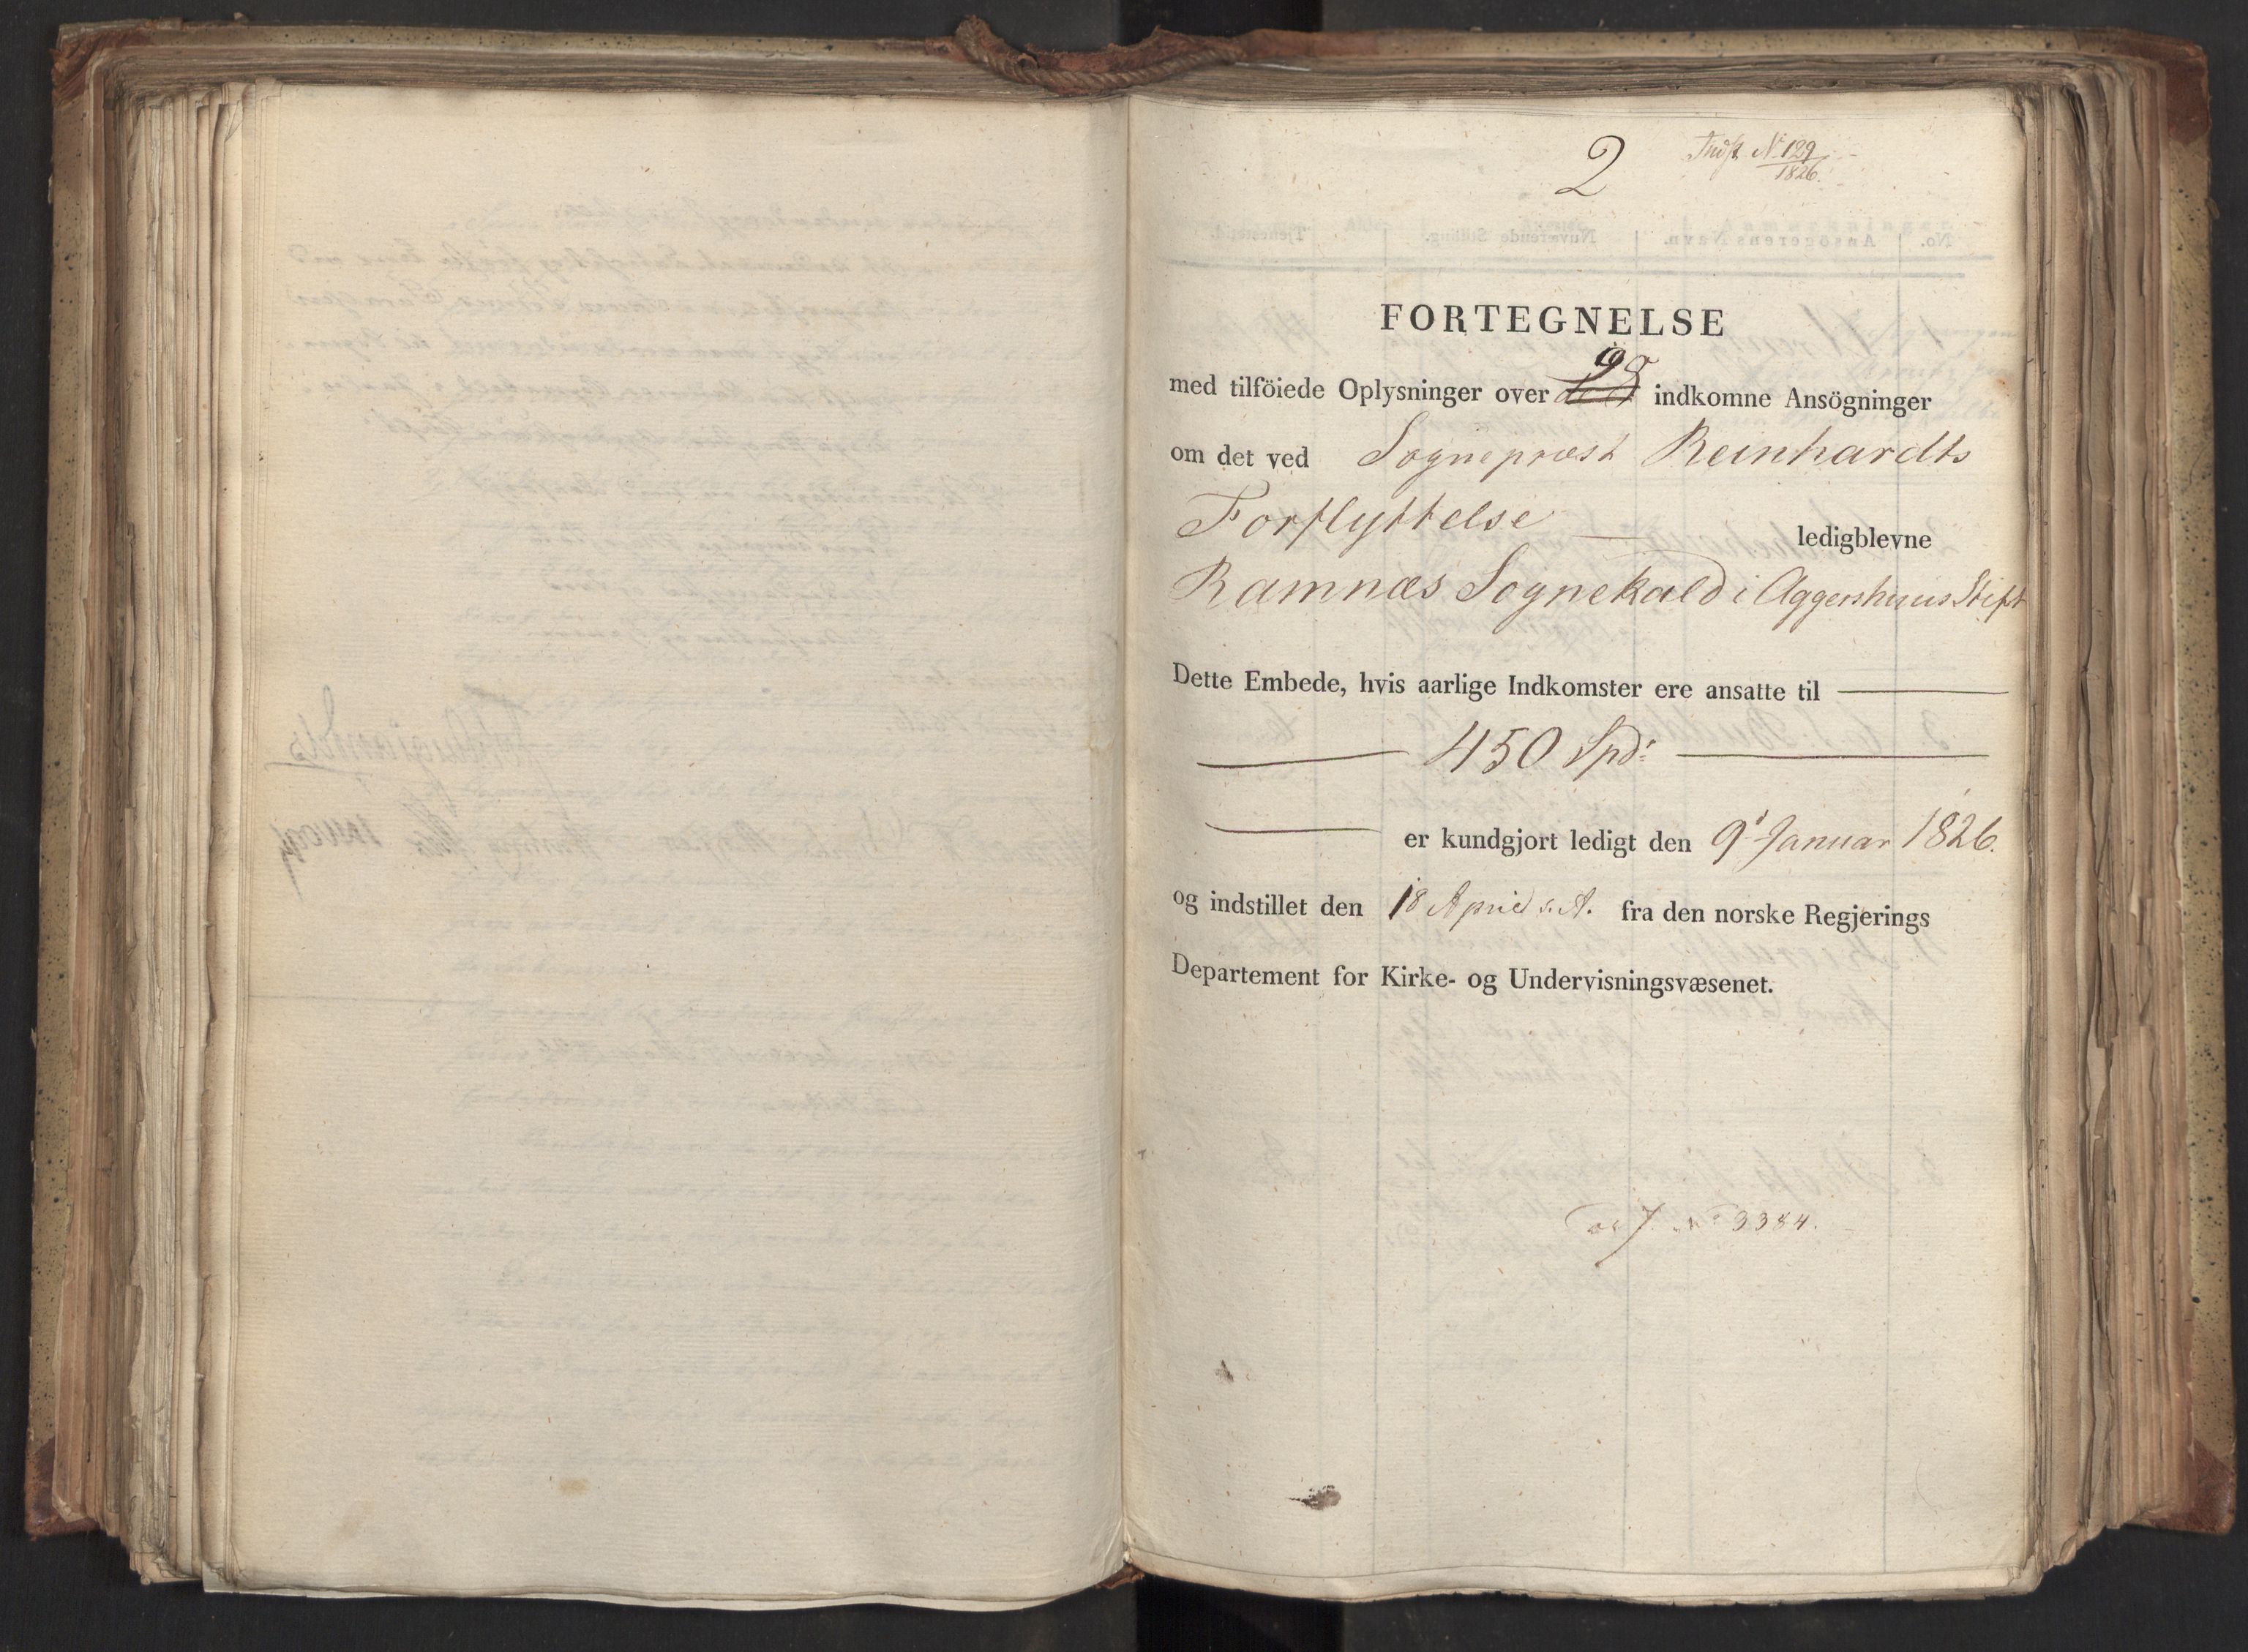 2
Indst. No 129
1826.
FORTEGNELSE
med tilföiede Oplysninger over indkomne Ansögninger
om det ved Sognepræst Reinhardts
Forflyttelse ledigblevne
Ramnæs Sognekald i Aggershuus Stift
Dette Embede, hvis aarlige Indkomster ere ansatte til
450 Spd:
er kundgjort ledigt den 9de Januar 1826.
og indstillet den 18 April s. A. fra den norske Regjerings
Departement for Kirke- og Undervisningsvæsenet.
No 3384.